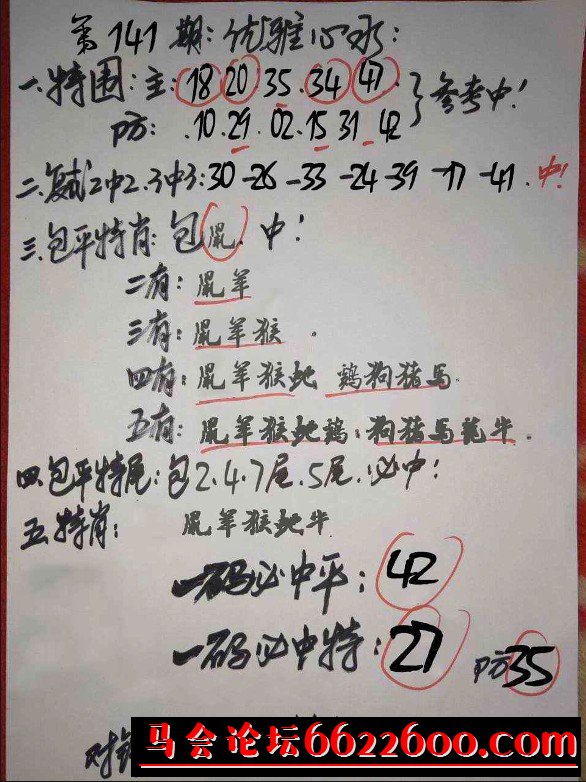 第141期:优雅心水:
一.特围:主:18 20 35.34 47.
防:.10.29.02.15 31.42
参考中!
二.复式2中2.3中3:30-26-33-24-39-17-41.中!
三.包平特肖:包鼠.中!
二有:鼠羊
三有:鼠羊猴.
四有:鼠羊猴蛇 鸡狗猪马
五有:鼠羊猴蛇鸡:狗猪马兔牛.
四.包平特尾:包2.4.7尾.5尾.必中!
五.特肖: 鼠羊猴蛇牛
一码必中平:42
一码必中特:27 防35
马会论坛6622600.com